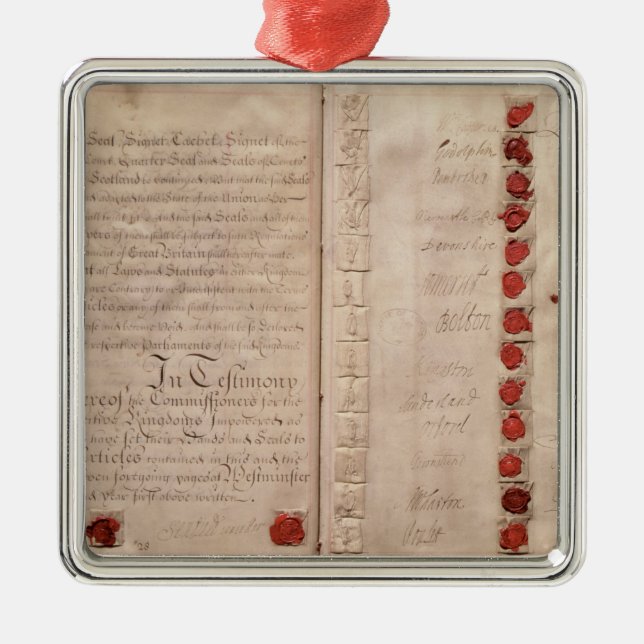 Seal, Signet, Cachet, Signet of the
Court, Quarter Seal and Seals of Courts
Scotland to be continued, But that the said Seals
and adapted to the State of the Union as Her
shall think fit. And the said Seals and all of them
epers of them shall be subject to such Regulations
ament of Great Britain shall hereafter make.
at all Laws and Statutes in either Kingdom
y are Contrary to or Inconsistent with the Terms
rticles or any of them shall from and after the
ase and become Void, and shall be so Declared
respective Parliaments of the said Kingdoms.
In Testimony
ereof the Commissioners for the
ective Kingdoms Impowered as
have set their Hands and Seals to
Articles contained in this and the
even foregoing pages at Westminster
nd Year first above written.
28
Godolphin
Pembroke
Newcastle
Devonshire
Somerset
Bolton
Kingston
Sunderland
Orford
Townshend
Wharton
Poulet